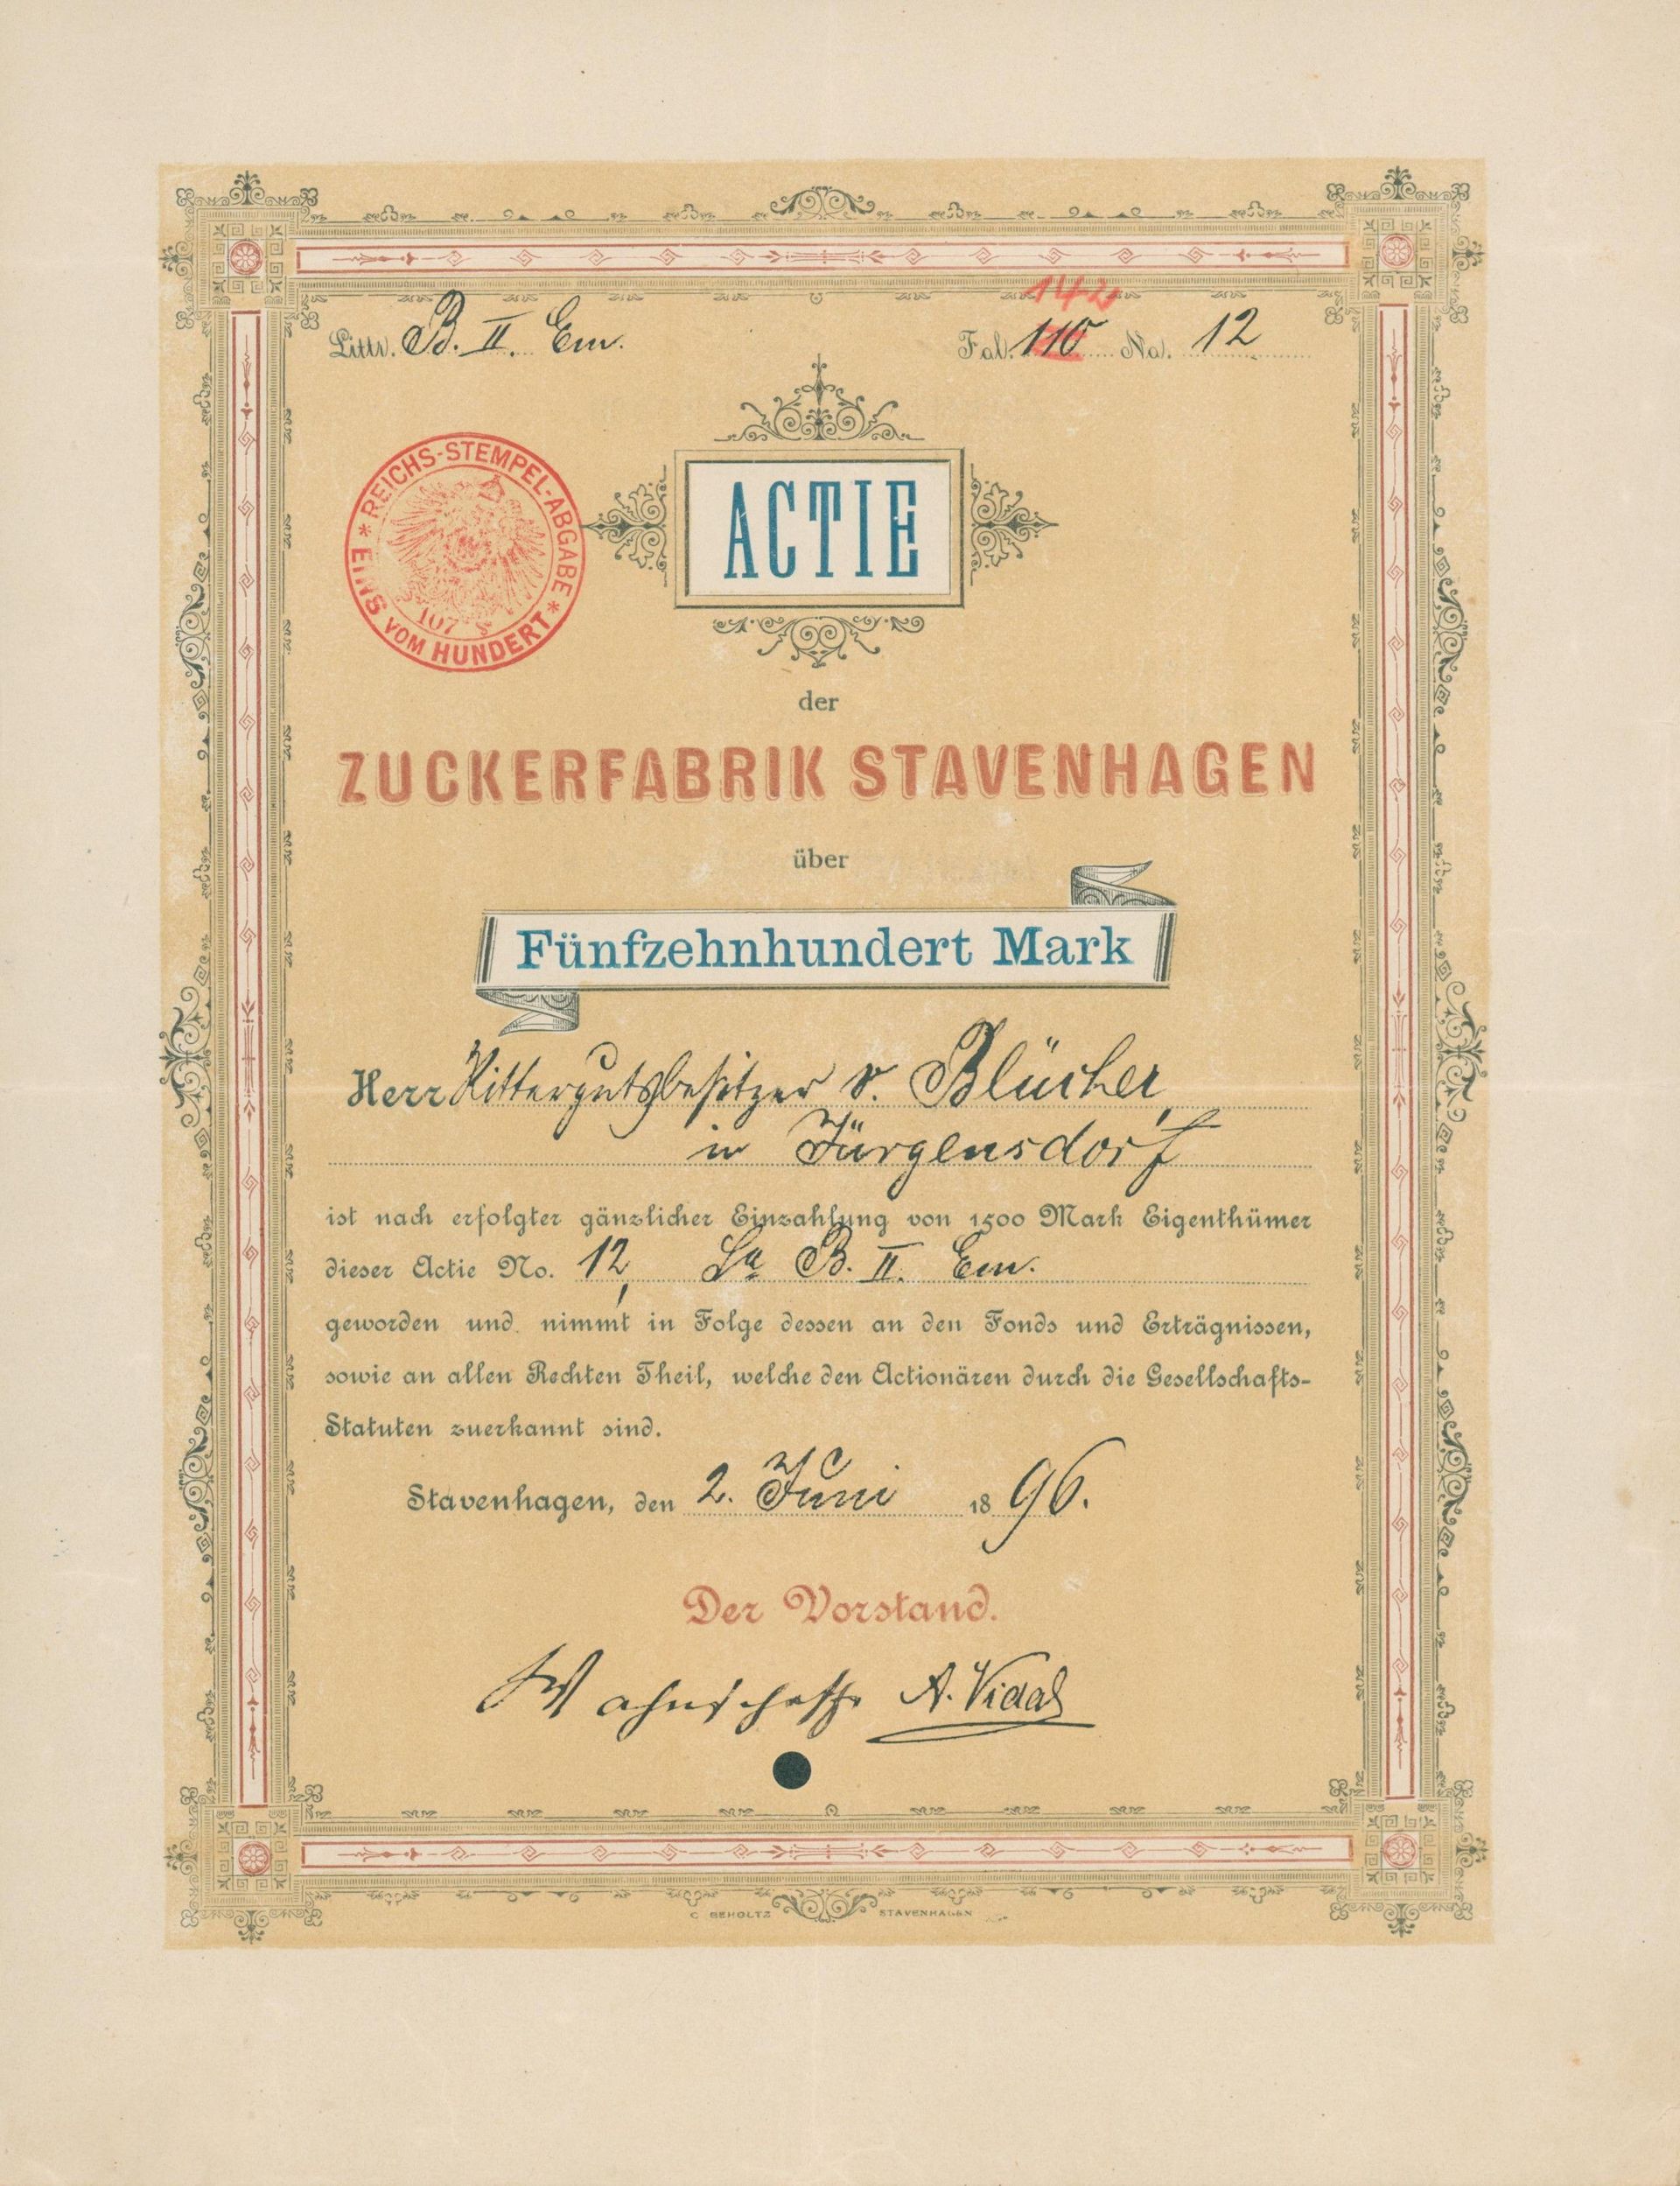 Littr. B. II. Em.
142
Fol. 110 No. 12
REICHS-STEMPEL-ABGABE
* EINS VOM HUNDERT *
107
ACTIE
der
ZUCKERFABRIK STAVENHAGEN
über
Fünfzehnhundert Mark
Herr Rittergutsbesitzer v. Blücher
in Jürgensdorf
ist nach erfolgter gänzlicher Einzahlung von 1500 Mark Eigenthümer
dieser Actie No. 12, La B. II. Em.
geworden und nimmt in Folge dessen an den Fonds und Erträgnissen,
sowie an allen Rechten Theil, welche den Actionären durch die Gesellschafts-
Statuten zuerkannt sind.
Stavenhagen, den 2. Juni 1896.
Der Vorstand.
Wahnschaffe A. Vidal
C BEHOLTZ STAVENHAGEN